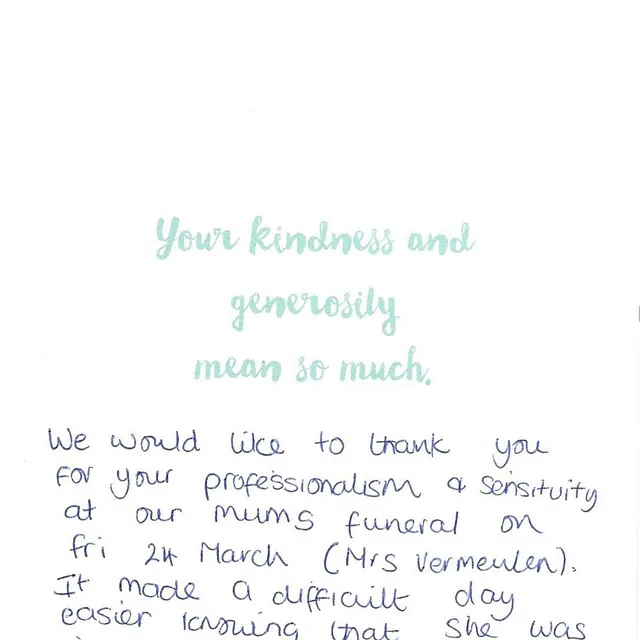 Your kindness and
generosity
mean so much.
We would like to thank you
for your professionalism & sensitivity
at our mums funeral on
fri 24 March (Mrs Vermeulen).
It made a difficult day
easier knowing that she was